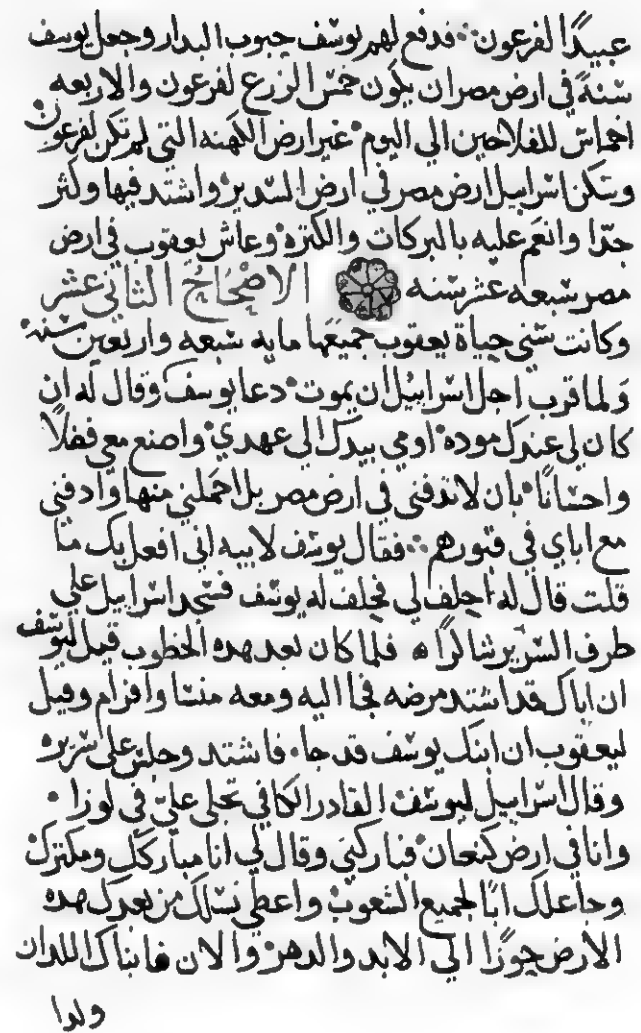 عبيدًا لفرعون ۞ فدفع لهم يوسف حبوب البدار وجعل يوسف
سنةً في ارض مصر ان يكون خمس الزرع لفرعون والاربعه
اخماس للفلاحين الي اليوم غير ارض الكهنه التي لم تكن لفرعون
وسكن اسراييل ارض مصر في ارض السدير واشتد فيها وكثر
جدًا وانعم عليه بالبركات والكثره وعاش يعقوب في ارض
مصر سبعه عشر سنه الاصحاح الثاني عشر
وكانت سني حياة يعقوب جميعها مايه سبعه واربعين سنه
ولما قرب اجل اسراييل ان يموت دعا يوسف وقال له ان
كان لي عندك موده اومي بيدك الي عهدي واصنع معي فضلًا
واحسانًا بان لا تدفني في ارض مصر بل احملني منها وادفني
مع اباي في قبورهم فقال يوسف لابيه اني افعل بك ما
قلت قال له احلف لي فحلف له يوسف فسجد اسراييل علي
طرف السرير شاكرًا فلما كان بعد هده الخطوب قيل ليوسف
ان اباك قد اشتد مرضه فجا اليه ومعه منسا وافرام وقيل
ليعقوب ان ابنك يوسف قد جا فاشتد وجلس علي سريره
وقال اسراييل ليوسف القادر الكافي تجلي عليّ في لوزا
وانا في ارض كنعان فباركني وقال لي انا مباركك ومكترك
وجاعلك ابًا لجميع الشعوب واعطي نسلك من بعدك هده
الارض حوزًا الي الابد والدهر والان فابناك اللدان
ولدا